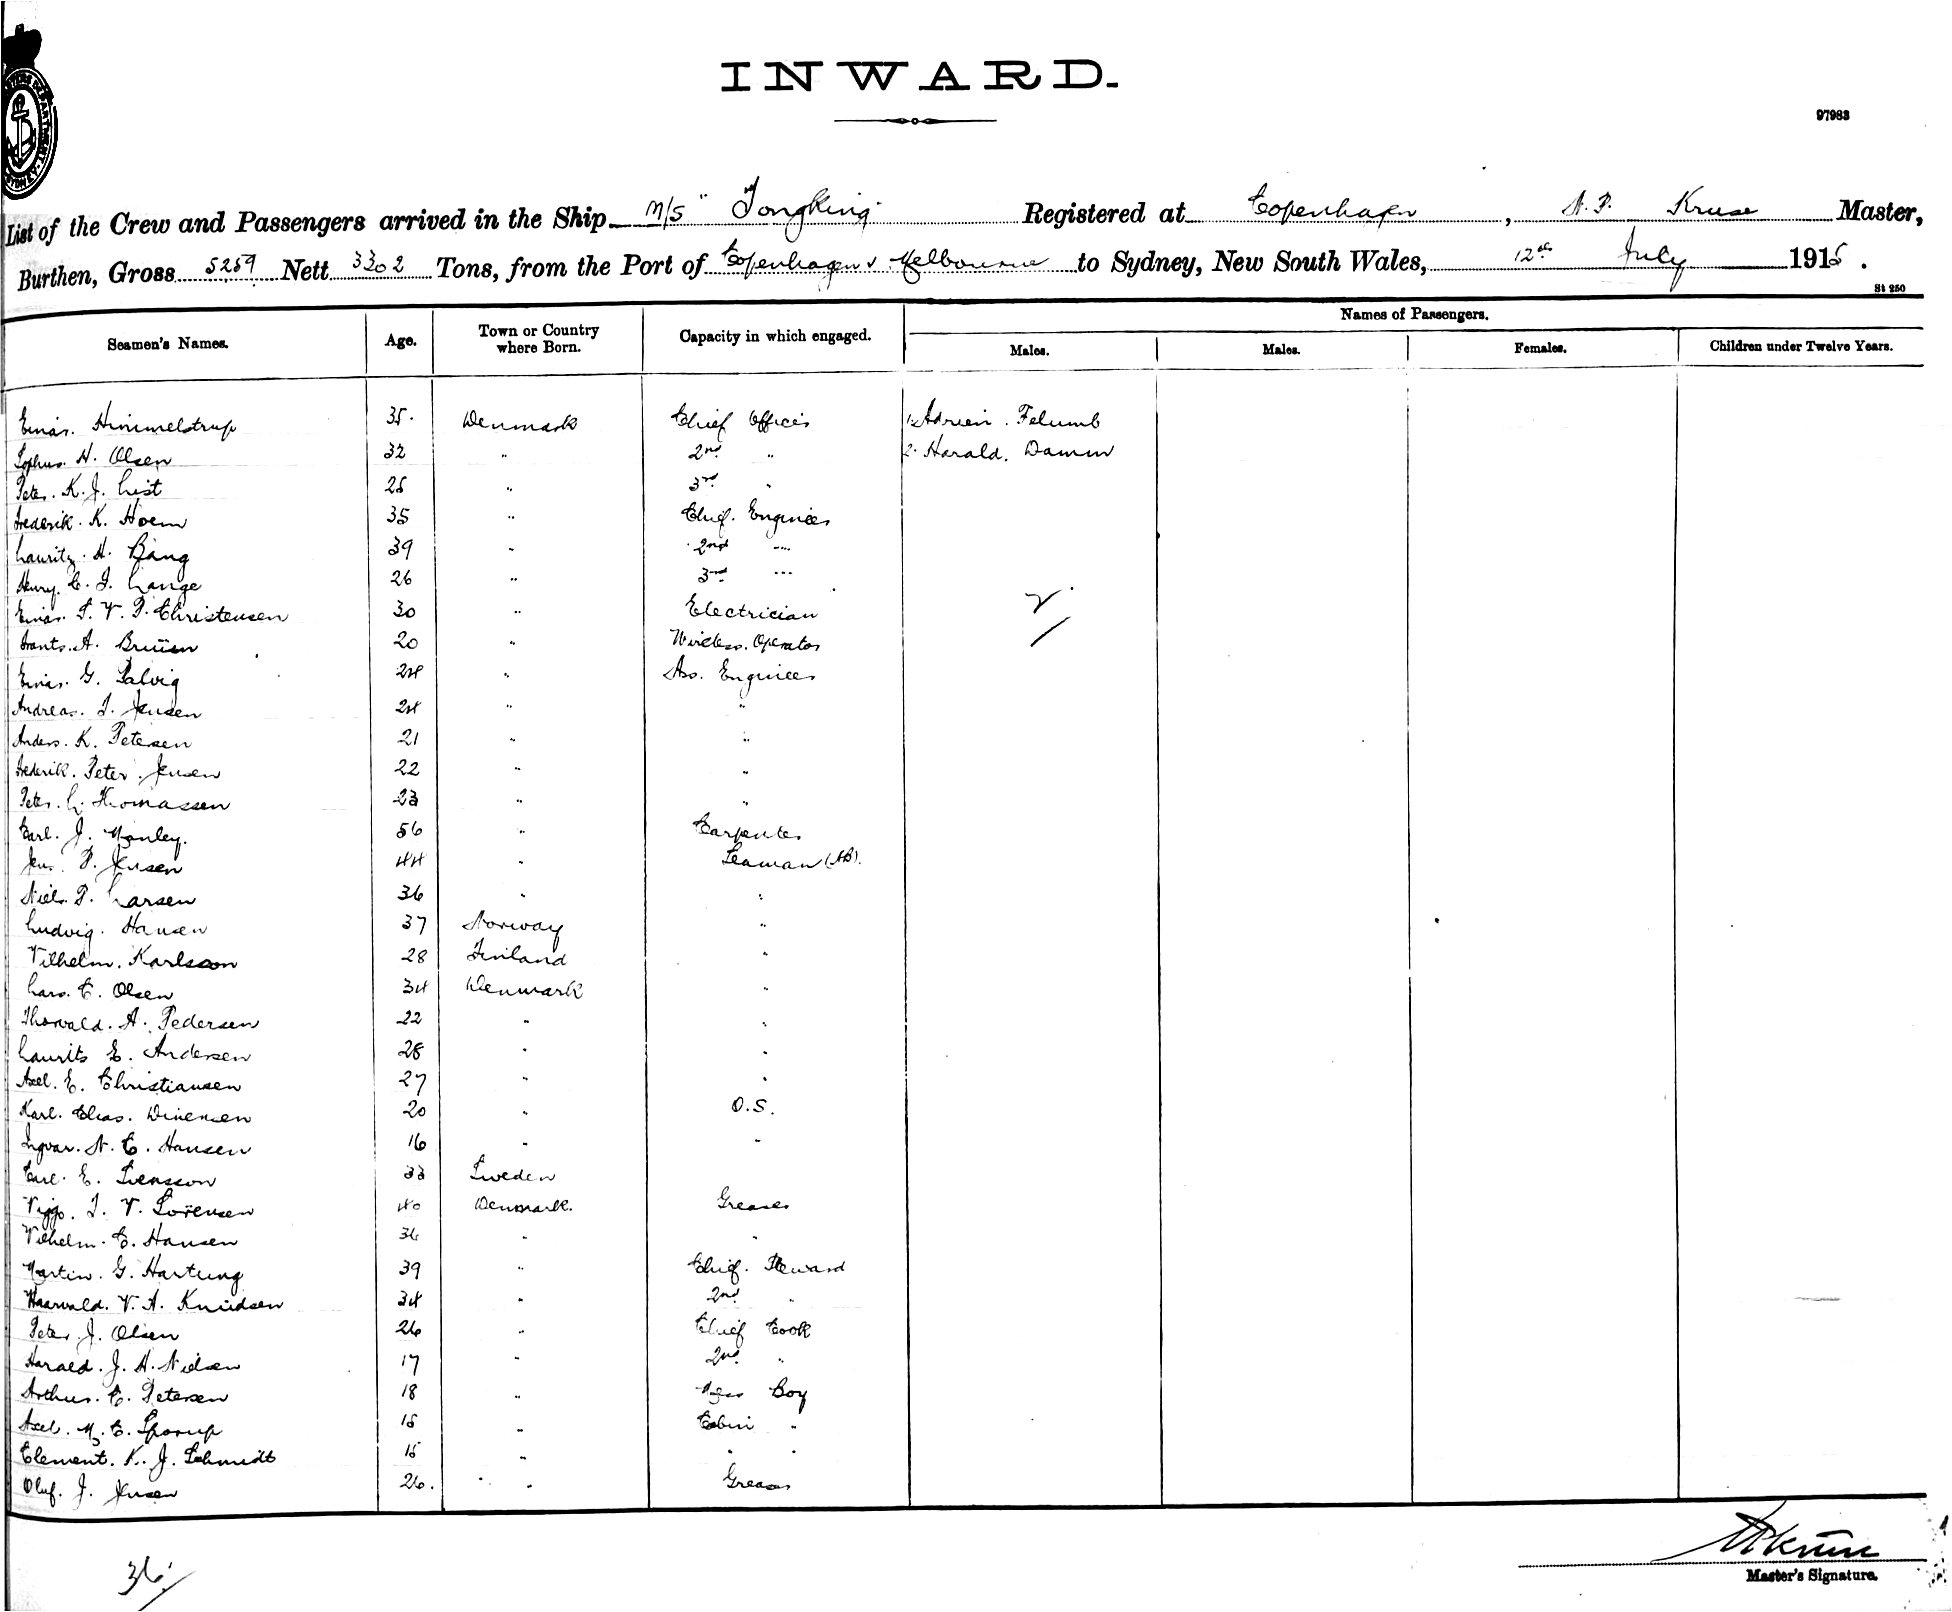 INWARD.
97983
List of the Crew and Passengers arrived in the Ship M/S "Tongking" Registered at Copenhagen, A. P. Kruse Master,
Burthen, Gross 5259 Nett 3302 Tons, from the Port of Copenhagen v. Melbourne to Sydney, New South Wales, 12th July 1915.
St 250
Seamen's Names. Age. Town or Country where Born. Capacity in which engaged. Names of Passengers.
Males. Males. Females. Children under Twelve Years.
Einar. Himmelstrup 35. Denmark Chief Officer 1. Adrien. Felumb
Sophus. H. Olsen 32 " 2nd " 2. Harald. Damm
Peter. K. J. List 25 " 3rd "
Frederik. K. Hoem 35 " Chief. Engineer
Lauritz. H. Bang 39 " 2nd "
Henry. C. J. Lange 26 " 3rd "
Einar. P. V. P. Christensen 30 " Electrician
Frants. A. Bruün 20 " Wireless. Operator
Einar. G. Palvig 24 " Ass. Engineer
Andreas. J. Jensen 24 " "
Anders. K. Petersen 21 " "
Frederik. Peter. Jensen 22 " "
Peter. L. Thomassen 23 " "
Carl. J. Manley. 56 " Carpenter
Jens. P. Jensen 44 " Seaman (AB).
Niels. P. Larsen 36 " "
Ludvig. Hansen 37 Norway "
Vilhelm. Karlsson 28 Finland "
Lars. C. Olsen 34 Denmark "
Thorvald. A. Pedersen 22 " "
Laurits E. Andersen 28 " "
Axel. E. Christiansen 27 " "
Karl. Elias. Dinensen 20 " O.S.
Ingvar. N. C. Hansen 16 " "
Carl. E. Svensson 33 Sweden
Viggo. J. V. Sörensen 40 Denmark. Greaser
Vilhelm. C. Hansen 36 " "
Martin. G. Hartung 39 " Chief. Steward
Haarvald. V. A. Knüdsen 34 " 2nd "
Peter. J. Olsen 26 " Chief Cook
Harald. J. H. Nielsen 17 " 2nd "
Arthur. C. Petersen 18 " Mess Boy
Axel. M. C. Sporup 15 " Cabin "
Clement. K. J. Schmidt 15 " " "
Oluf. J. Jensen 26. " Greaser
36.
Master's Signature.